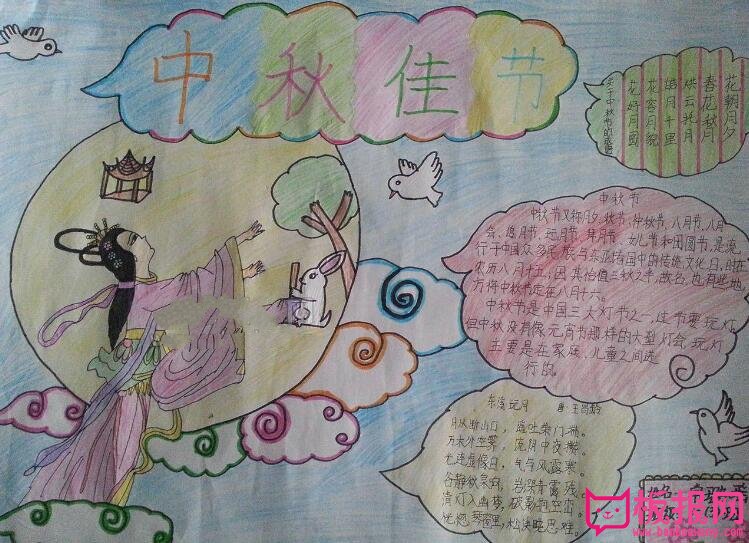 中秋佳节
关于中秋节的成语
花朝月夕
春花秋月
烘云托月
皓月千里
花容月貌
花好月圆
中秋节
中秋节又称月夕、秋节、仲秋节、八月节、八月
会、追月节、玩月节、拜月节、女儿节和团圆节,是流
行于中国众多民族与东亚诸国中的传统文化日,时在
农历八月十五;因其恰值三秋之半,故名,也有些地
方将中秋节定在八月十六。
中秋节是中国三大灯节之一,过节要玩灯
但中秋没有像元宵节那样的大型灯会,玩灯
主要是在家族、儿童之间进
行的。
东溪玩月 唐·王昌龄
月从断山口,遥吐柴门端。
万木分空霁,流阴中夜攒。
光连虚像白,气与风露寒。
谷静秋泉响,岩深青霭残。
清灯入幽梦,破影抱空峦。
恍惚琴窗里,松溪晓思难。
板报网
www.banbaowang.com